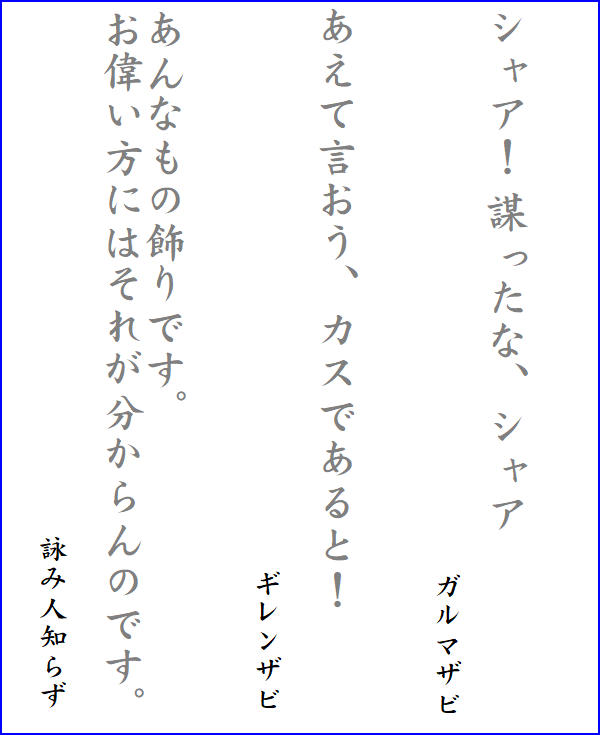 シャア！謀ったな、シャア
ガルマザビ
あえて言おう、カスであると！
ギレンザビ
あんなもの飾りです。
お偉い方にはそれが分からんのです。
詠み人知らず